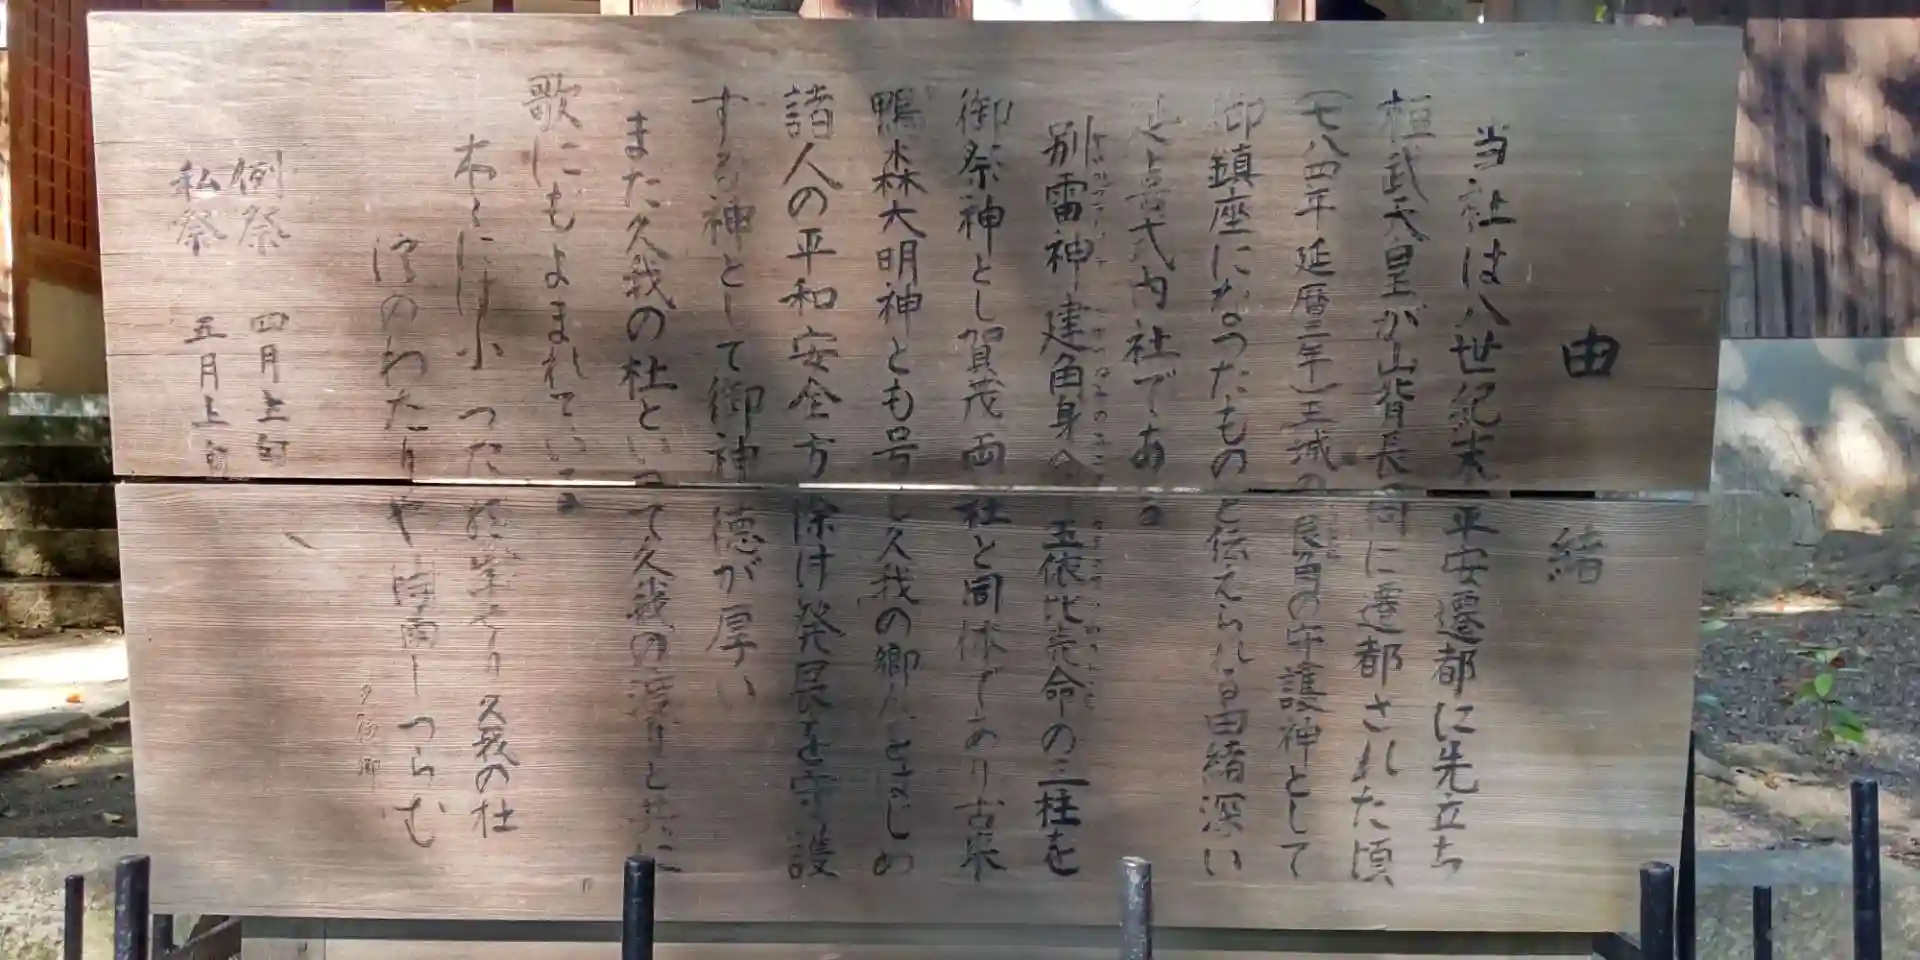 由緒
当社は八世紀末平安遷都に先立ち
桓武天皇が山背長岡に遷都された頃
(七八四年延暦三年)王城の艮角の守護神として
御鎮座になったものと伝えられる由緒深い
延喜式内社である
別雷神建角身命玉依比売命の三柱を
御祭神とし賀茂両社と同体であり古来
鴨森大明神とも号し久我の郷人をはじめ
諸人の平和安全方除け発展を守護
する神として御神徳が厚い
また久我の杜といって久我の渡りと共に
歌にもよまれている
木々には小つた 久我の杜
のわたりや時雨しつらむ
例祭 四月上旬
私祭 五月上旬